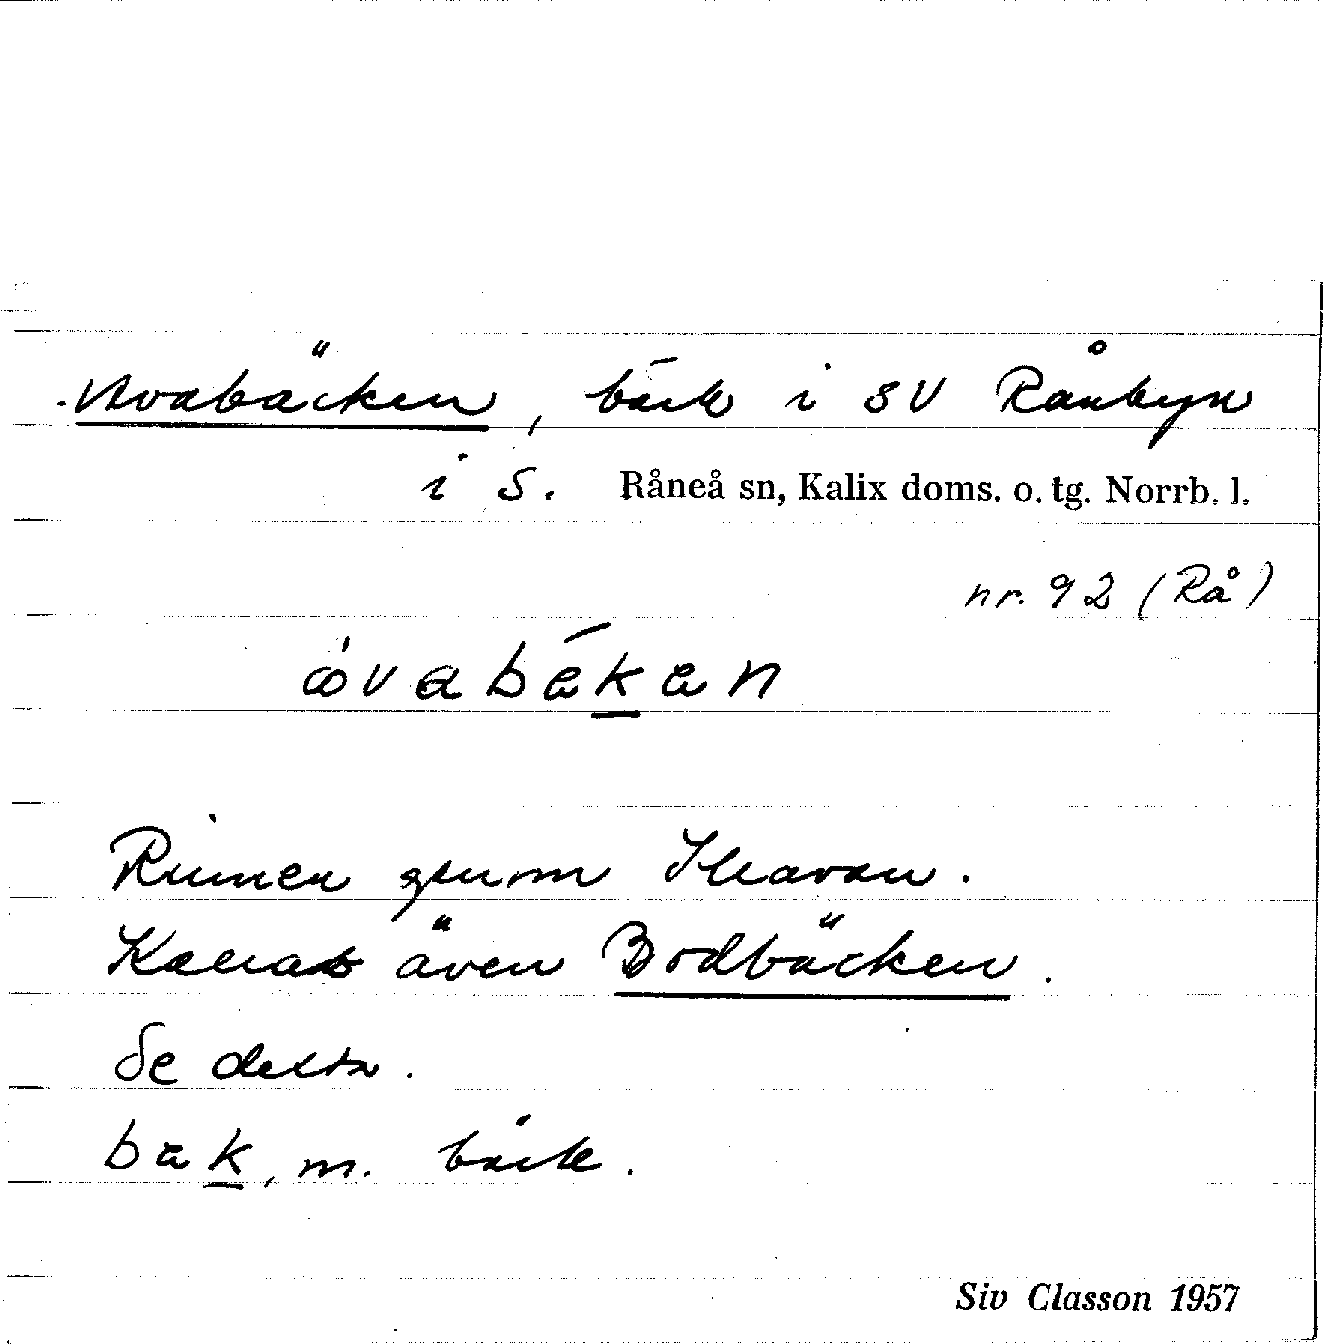 Avabäcken, bäck i SV Rånbyn
i S. Råneå sn, Kalix doms. o. tg. Norrb. l.
nr. 92 (Rå)
Rinner genom Inavan.
Kallas även Bodbäcken.
Se detta.
bäk, m. bäck.
Siv Classon 1957